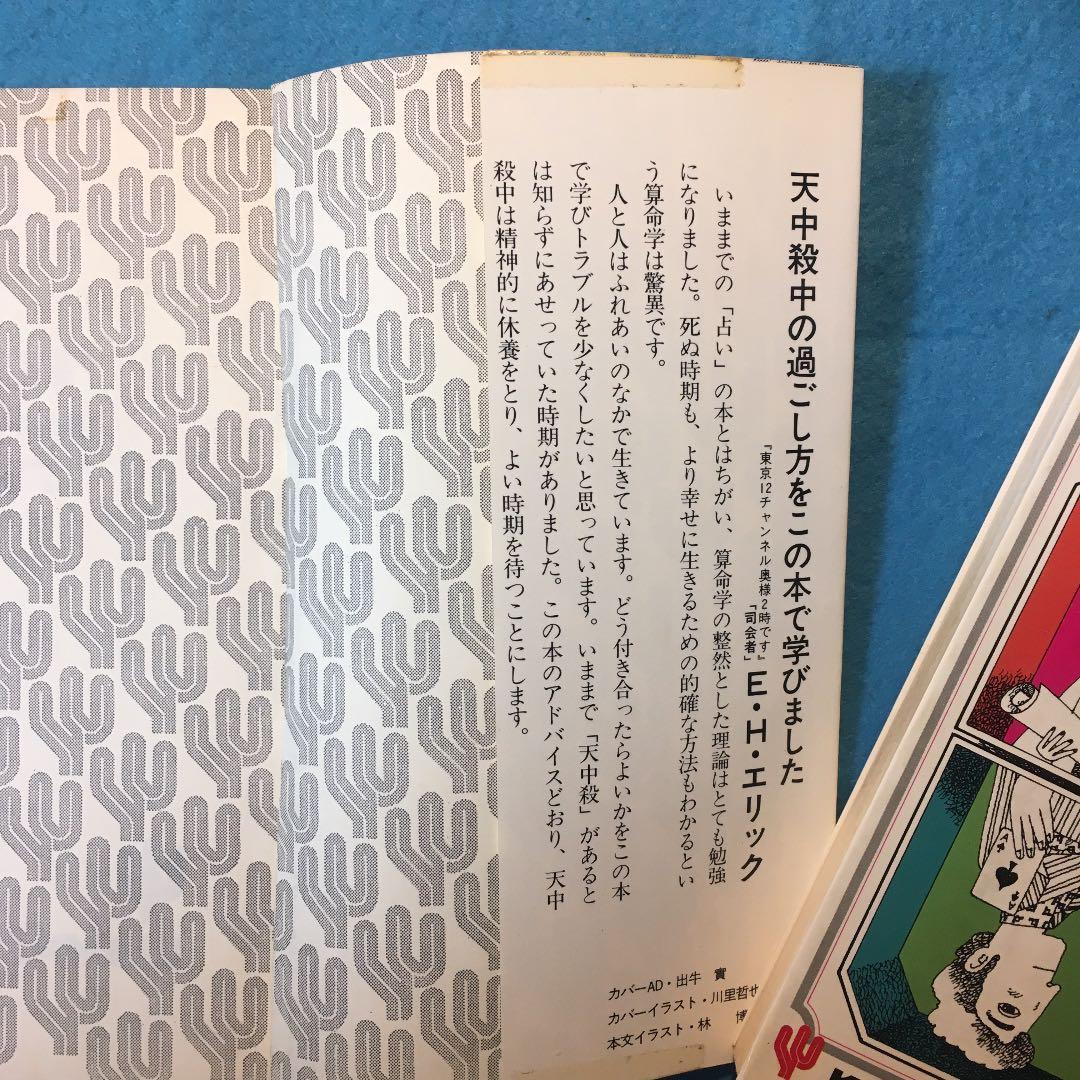 天中殺中の過ごし方をこの本で学びました
「東京12チャンネル奥様2時です』
「司会者」
E・H・エリック
いままでの「占い」の本とはちがい、算命学の整然とした理論はとても勉強
になりました。死ぬ時期も、より幸せに生きるための的確な方法もわかるとい
う算命学は驚異です。
人と人はふれあいのなかで生きています。どう付き合ったらよいかをこの本
で学びトラブルを少なくしたいと思っています。いままで「天中殺」があると
は知らずにあせっていた時期がありました。この本のアドバイスどおり、天中
殺中は精神的に休養をとり、よい時期を待つことにします。
カバーAD・出牛 實
カバーイラスト・川里哲也
本文イラスト・林 博